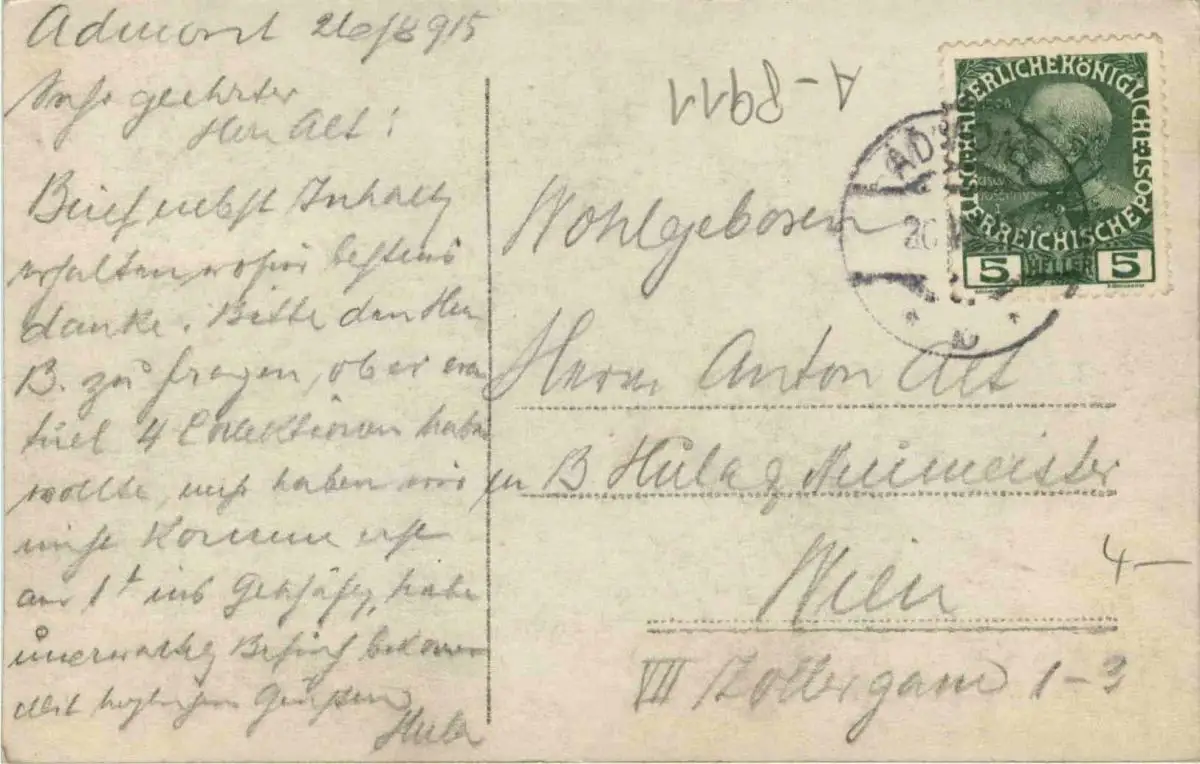 Admont 26/8 915
Sehr geehrter
Herr Alt!
Brief nebst Inhalt
erhalten, wofür bestens
danke. Bitte den Herrn
B. zu fragen, ob er even
tuel 4 Collektionen haben
wollte, mehr haben wir
nicht. Komme erst
am 1t ins Geschäft, habe
unerwartet Besuch bekommen
Mit herzlichen Grüßen
Hula
A-8911
Wohlgeboren
Herrn Anton Alt
in B Hula & Neumeister
Wien
VII Zollergasse 1-3
4-
KAISERLICHE KÖNIGLICHE ÖSTERREICHISCHE POST
5 HELLER 5
ADMONT